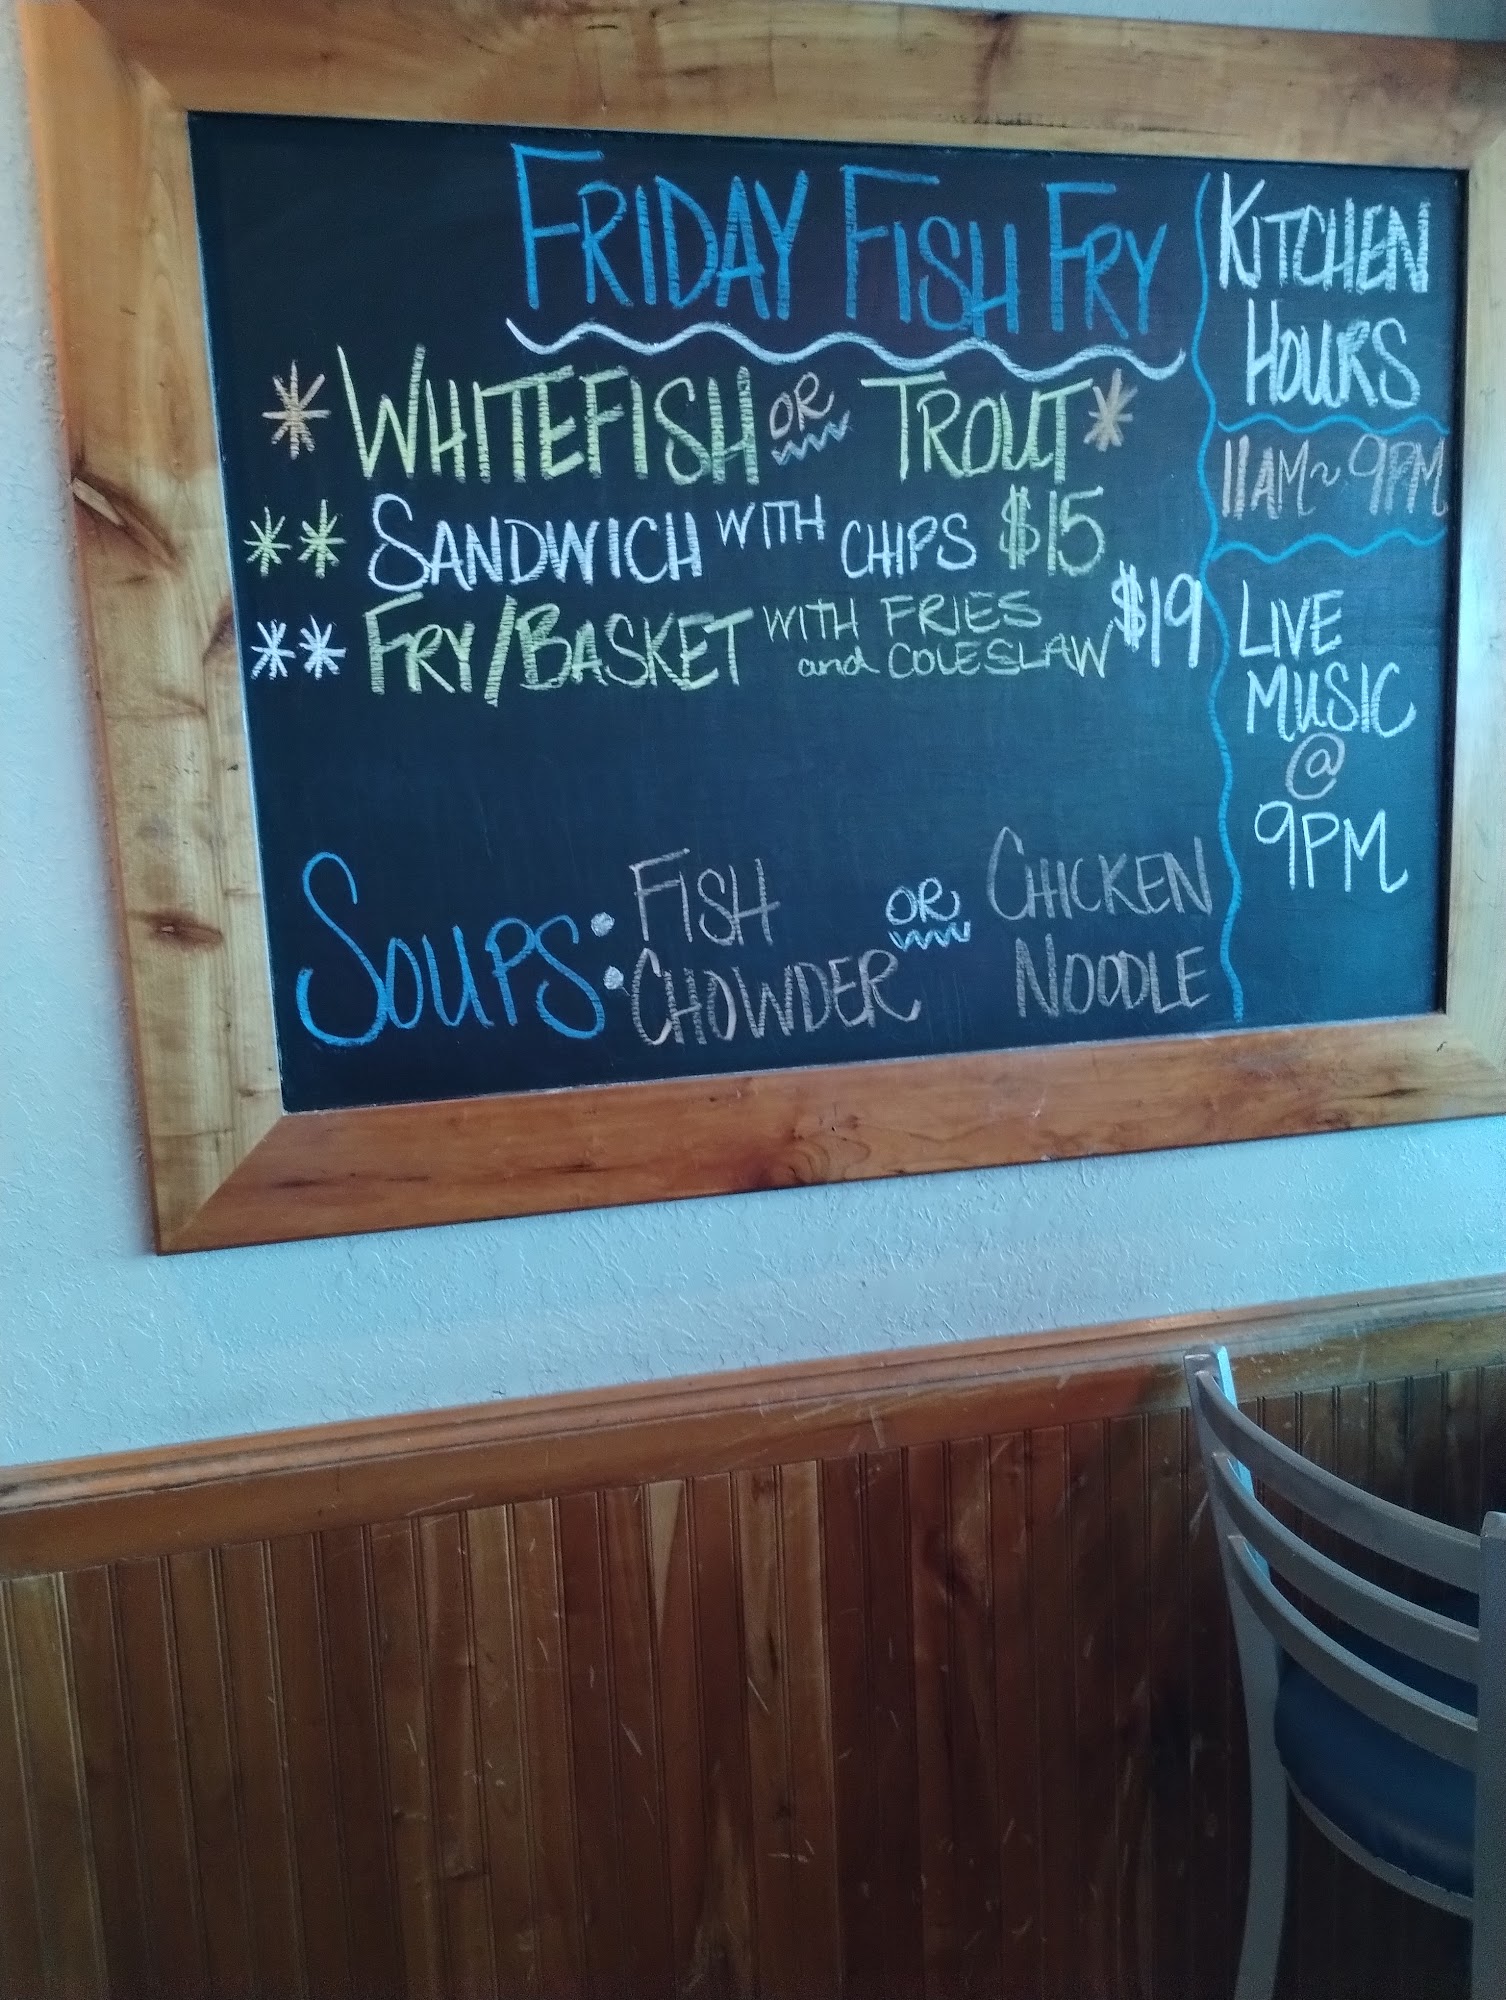 FRIDAY FISH FRY
* WHITEFISH OR TROUT *
** SANDWICH WITH CHIPS $15
** FRY/BASKET WITH FRIES and COLESLAW $19
SOUPS: FISH CHOWDER OR CHICKEN NOODLE
KITCHEN
HOURS
11AM~9PM
LIVE
MUSIC
@
9PM